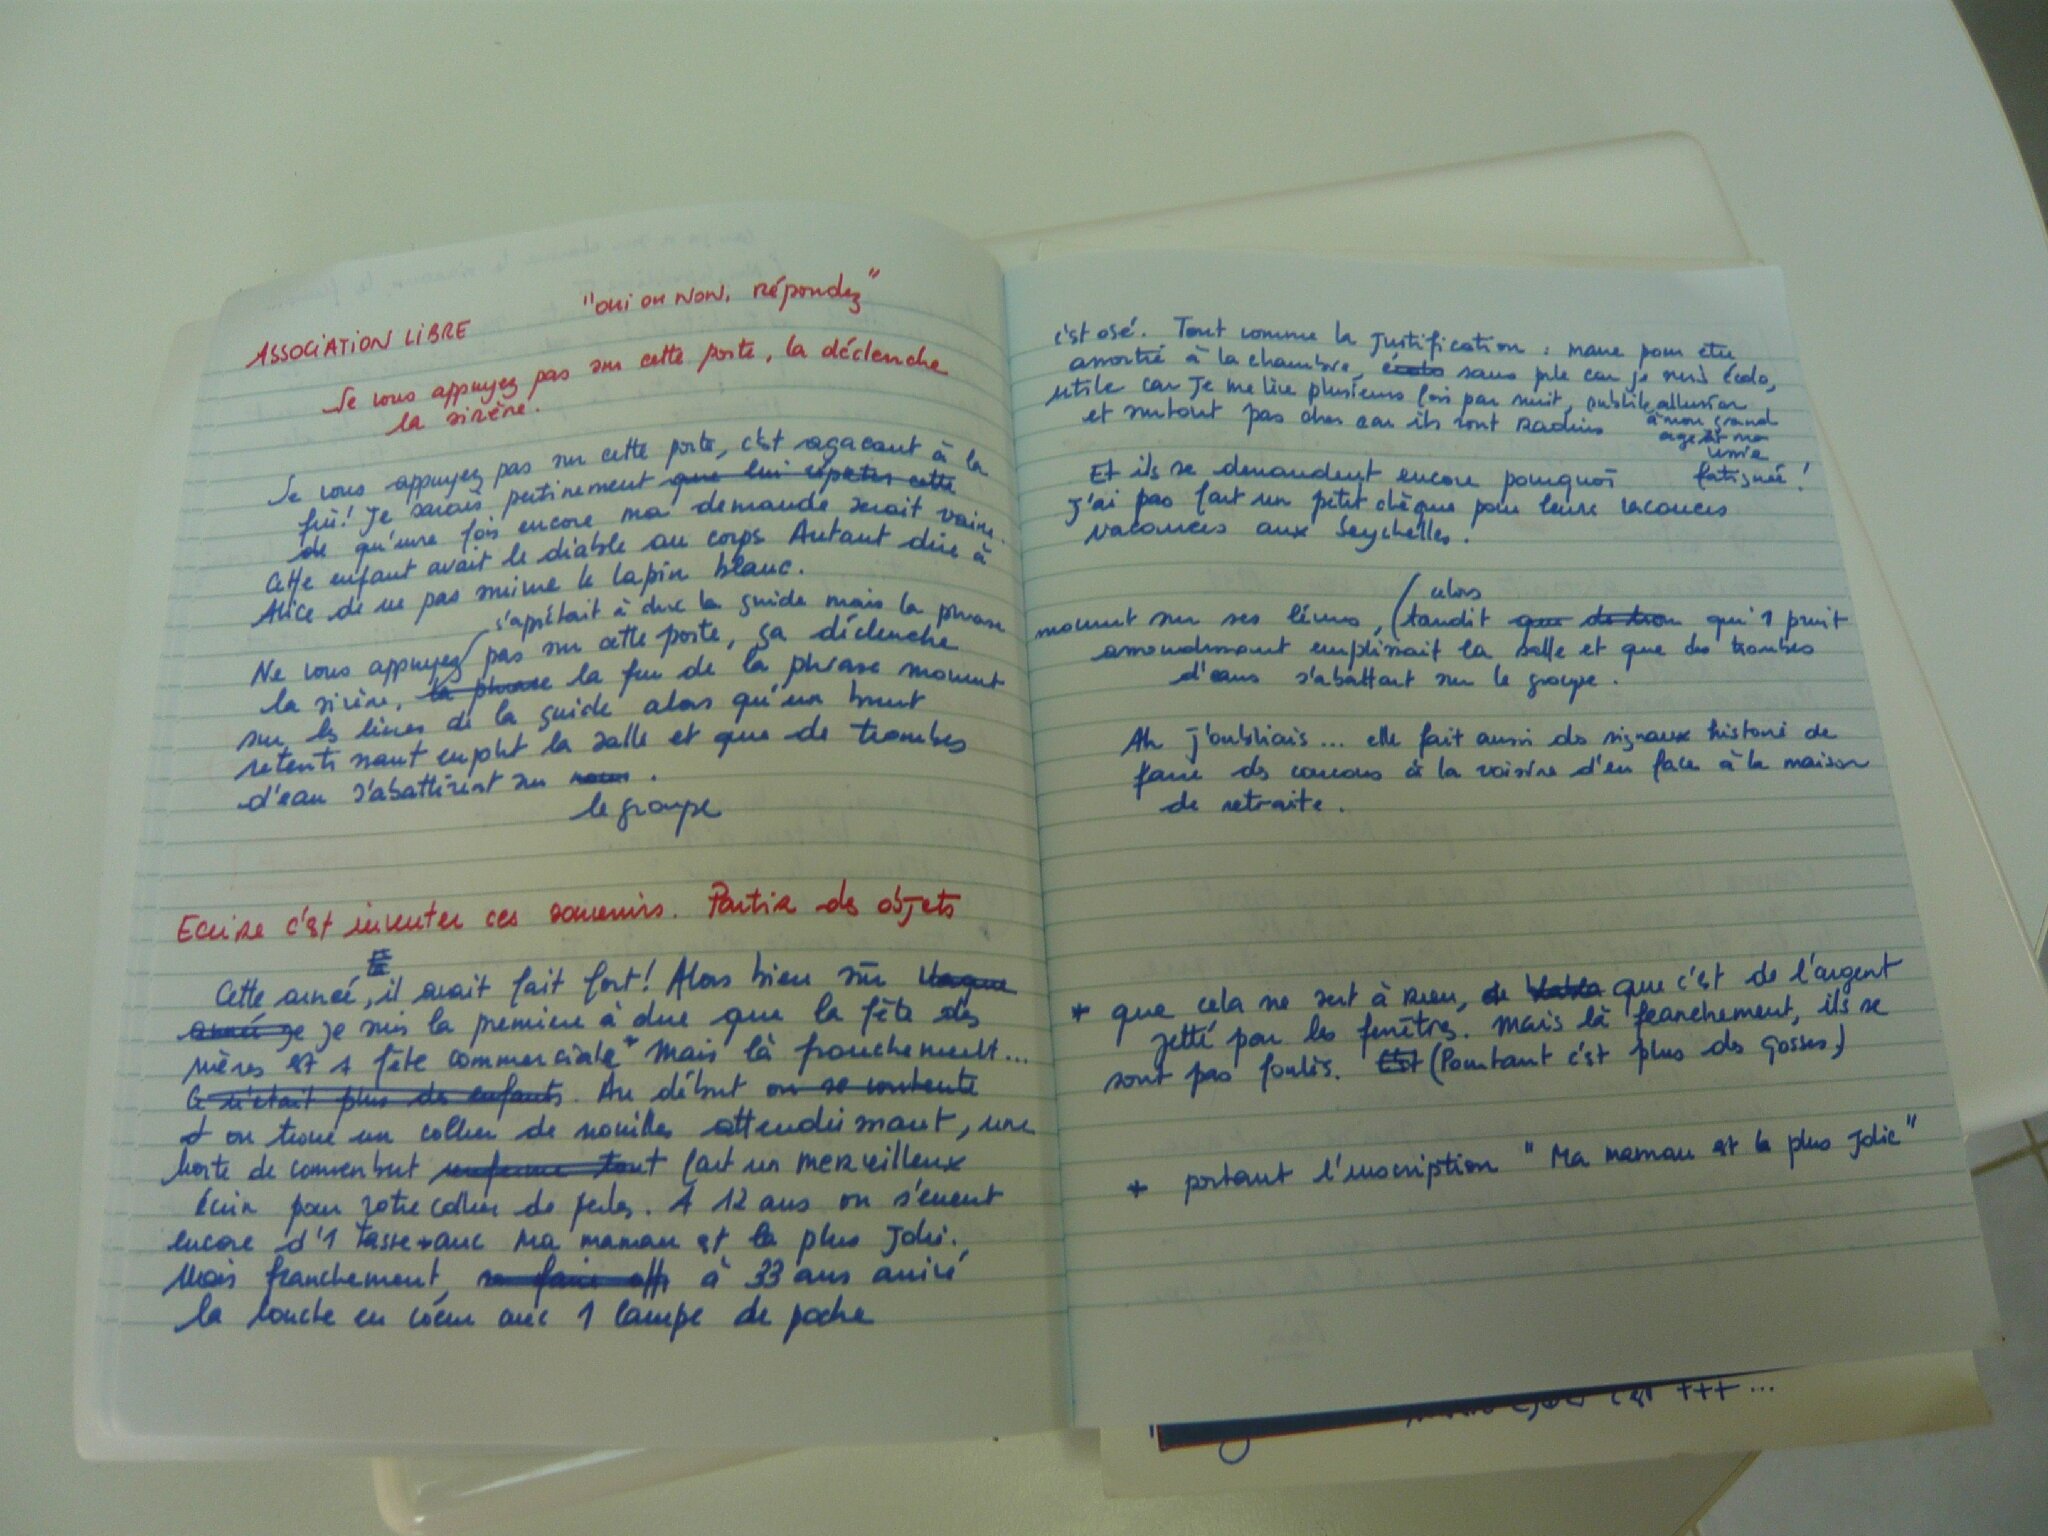 "oui ou NON, répondez"
ASSOCIATION LIBRE
Ne vous appuyez pas sur cette porte, la déclenche
la sirène.
Ne vous appuyez pas sur cette porte, c'est agaçant à la
fin! Je savais pertinement que lui répéter cette
de qu'une fois encore ma demande serait vaine.
Cette enfant avait le diable au corps. Autant dire à
Alice de ne pas suivre le lapin blanc.
s'aprêtait à dire la guide mais la phrase
Ne vous appuyez pas sur cette porte, ça déclenche
la sirène, la phrase la fin de la phrase mourut
sur les lèvres de la guide alors qu'un bruit
retentissant emplit la salle et que de trombes
d'eau s'abattirent sur nous.
le groupe
Ecrire c'est inventer ces souvenirs. Partir des objets
Cette année, il avait fait fort! Alors bien sûr
année je je suis la première à dire que la fête des
mères est 1 fête commerciale* Mais là franchement...
Ce n'était plus des enfants. Au début on se contente
d on trouve un collier de nouilles attendrissant, une
boite de camenbert renferme tout fait un merveilleux
écrin pour votre collier de perles. A 12 ans on s'émeut
encore d'1 tasse*avec Ma maman est la plus jolie.
Mais franchement, se faire à 33 ans arrivé
la bouche en coeur avec 1 lampe de poche
c'est osé. Tout comme la justification : mauve pour être
assortie à la chambre, écolo sans pile car je suis écolo,
utile car je me lève plusieurs fois par nuit, subtile allusion
à mon grand
age et ma
vessie
fatiguée!
et surtout pas cher car ils sont radins
Et ils se demandent encore pourquoi
j'ai pas fait un petit chèque pour leurs vacances
vacances aux Seychelles.
alors
mourut sur ses lèvres, tandit que de tron qu'1 bruit
assourdissant emplissait la salle et que des trombes
d'eaux s'abattait sur le groupe.
Ah j'oubliais... elle fait aussi des signaux histoire de
faire des coucous à la voisine d'en face à la maison
de retraite.
* que cela ne sert à rien, de blabla que c'est de l'argent
jetté par les fenêtres. Mais là franchement, ils se
sont pas foulés. Est (Pourtant c'est plus des gosses)
* portant l'inscription "Ma maman est la plus jolie"
c'est +++...